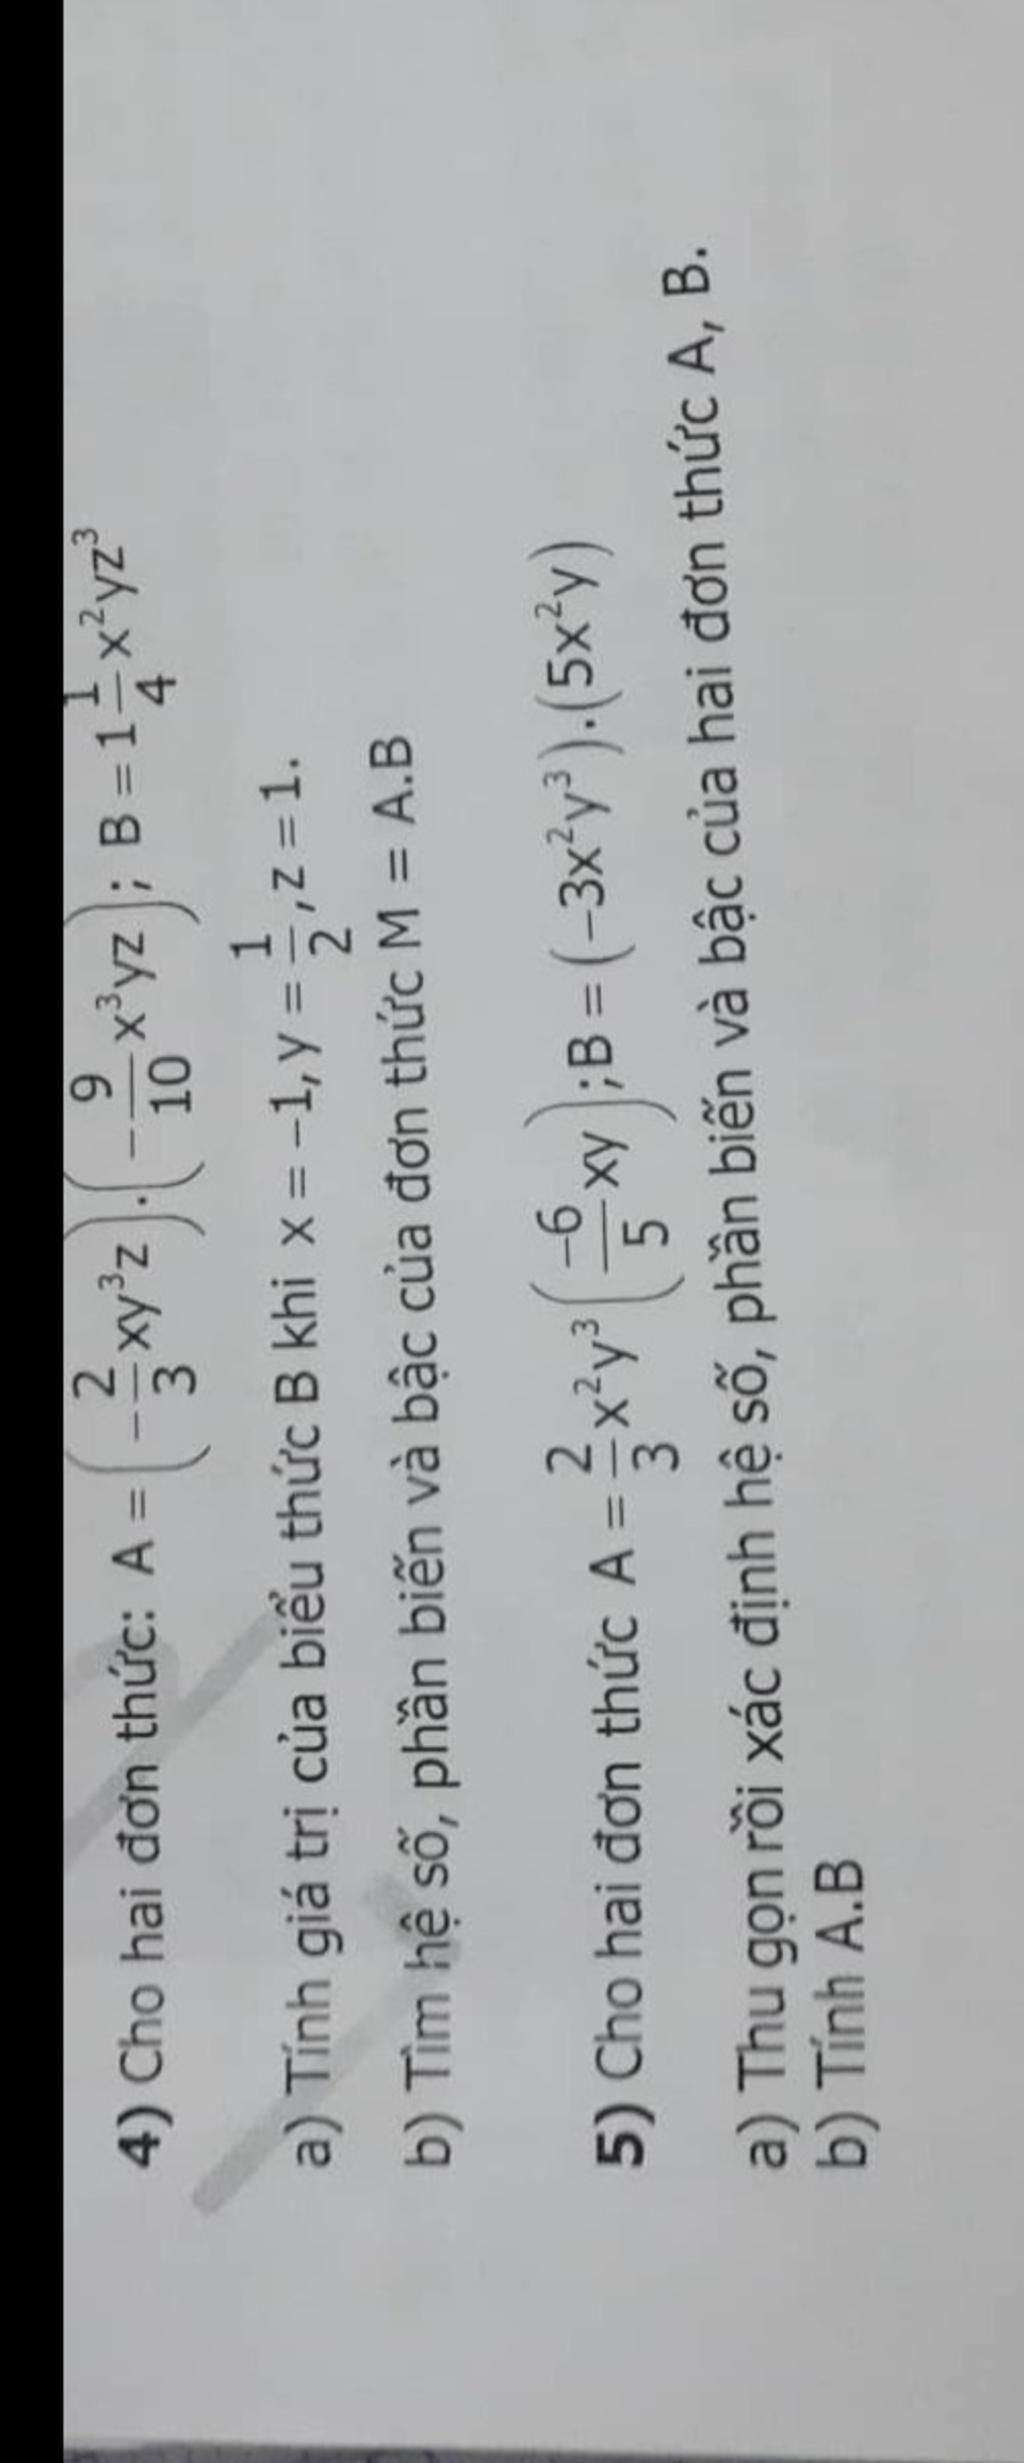 4) Cho hai đơn thức: A = (-2/3 xy³z).(-9/10 x³yz); B = 1 1/4 x²yz³
a) Tính giá trị của biểu thức B khi x = -1, y = 1/2, z = 1.
b) Tìm hệ số, phần biến và bậc của đơn thức M = A.B
5) Cho hai đơn thức A = 2/3 x²y³ (-6/5 xy); B = (-3x²y³).(5x²y)
a) Thu gọn rồi xác định hệ số, phần biến và bậc của hai đơn thức A, B.
b) Tính A.B